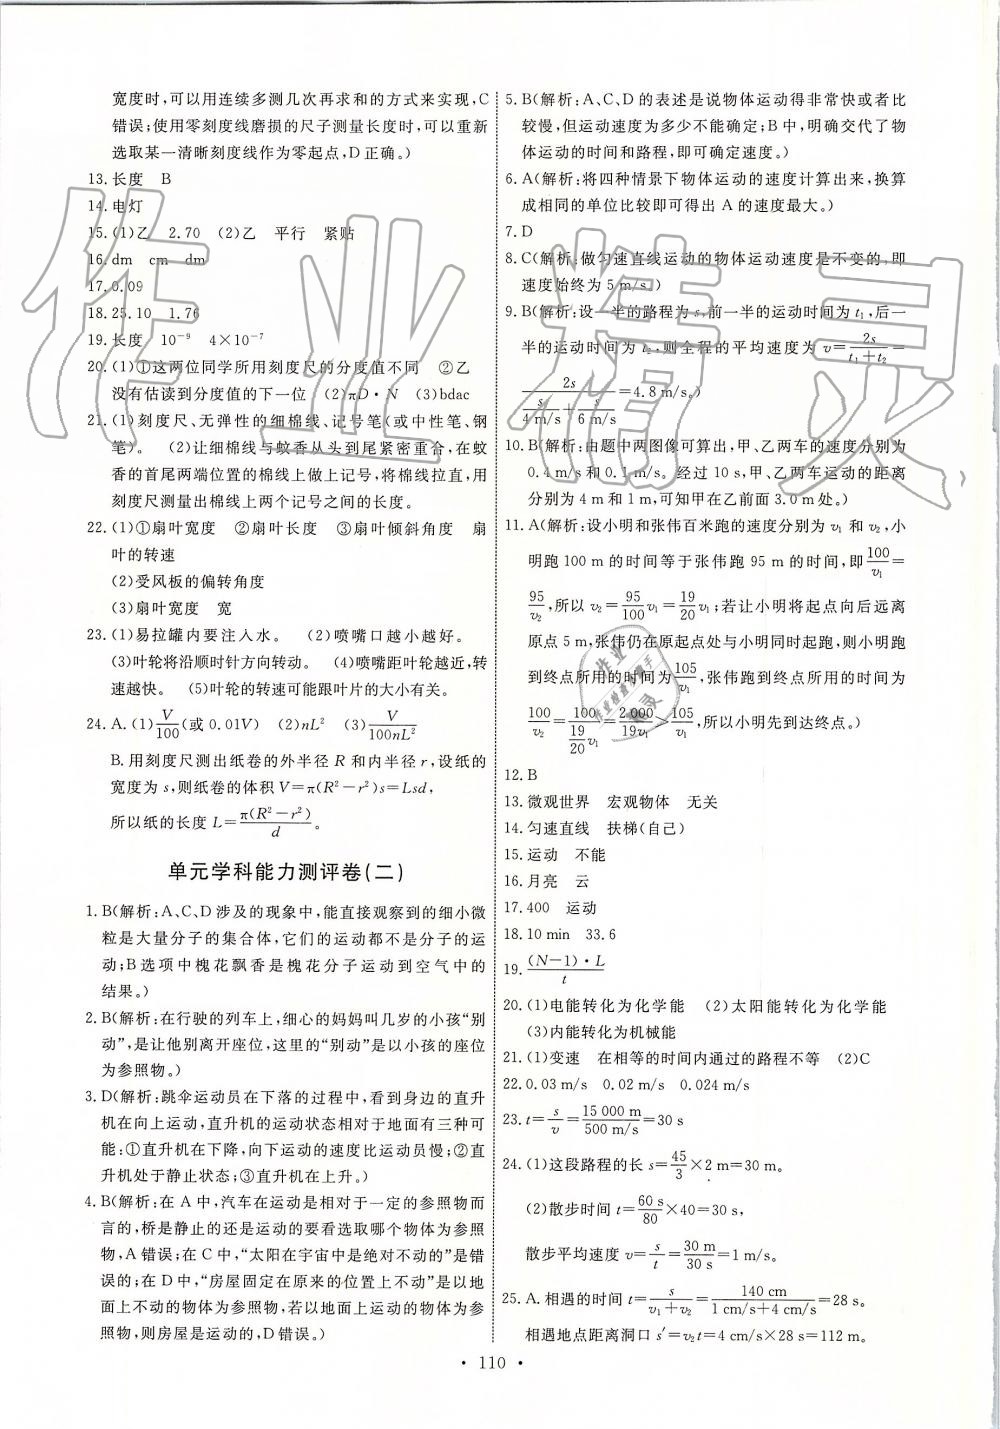 宽度时,可以用连续多测几次再求和的方式来实现,C
错误;使用零刻度线磨损的尺子测量长度时,可以重新
选取某一清晰刻度线作为零起点,D正确。)
13.长度 B
14.电灯
15.(1)乙 2.70 (2)乙 平行 紧贴
16.dm cm dm
17.0.09
18.25.10 1.76
19.长度 10⁻⁹ 4×10⁻⁷
20.(1)①这两位同学所用刻度尺的分度值不同 ②乙
没有估读到分度值的下一位 (2)πD·N (3)bdac
21.(1)刻度尺、无弹性的细棉线、记号笔(或中性笔、钢
笔)。 (2)让细棉线与蚊香从头到尾紧密重合,在蚊
香的首尾两端位置的棉线上做上记号,将棉线拉直,用
刻度尺测量出棉线上两个记号之间的长度。
22.(1)①扇叶宽度 ②扇叶长度 ③扇叶倾斜角度 扇
叶的转速
(2)受风板的偏转角度
(3)扇叶宽度 宽
23.(1)易拉罐内要注入水。 (2)喷嘴口越小越好。
(3)叶轮将沿顺时针方向转动。 (4)喷嘴距叶轮越近,转
速越快。 (5)叶轮的转速可能跟叶片的大小有关。
24.A.(1)V/100(或0.01V) (2)nL² (3)V/100nL²
B.用刻度尺测出纸卷的外半径R和内半径r,设纸的
宽度为s,则纸卷的体积V=π(R²-r²)s=Lsd,
所以纸的长度L=π(R²-r²)/d。
单元学科能力测评卷(二)
1.B(解析:A、C、D涉及的现象中,能直接观察到的细小微
粒是大量分子的集合体,它们的运动都不是分子的运
动;B选项中槐花飘香是槐花分子运动到空气中的
结果。)
2.B(解析:在行驶的列车上,细心的妈妈叫几岁的小孩“别
动”,是让他别离开座位,这里的“别动”是以小孩的座位
为参照物。)
3.D(解析:跳伞运动员在下落的过程中,看到身边的直升
机在向上运动,直升机的运动状态相对于地面有三种可
能:①直升机在下降,向下运动的速度比运动员慢;②直
升机处于静止状态;③直升机在上升。)
4.B(解析:在A中,汽车在运动是相对于一定的参照物而
言的,桥是静止的还是运动的要看选取哪个物体为参照
物,A错误;在C中,“太阳在宇宙中是绝对不动的”是错
误的;在D中,“房屋固定在原来的位置上不动”是以地
面上不动的物体为参照物,若以地面上运动的物体为参
照物,则房屋是运动的,D错误。)
5.B(解析:A、C、D的表述是说物体运动得非常快或者比
较慢,但运动速度为多少不能确定;B中,明确交代了物
体运动的时间和路程,即可确定速度。)
6.A(解析:将四种情景下物体运动的速度计算出来,换算
成相同的单位比较即可得出A的速度最大。)
7.D
8.C(解析:做匀速直线运动的物体运动速度是不变的,即
速度始终为5 m/s。)
9.B(解析:设一半的路程为s,前一半的运动时间为t₁,后一
半的运动时间为t₂,则全程的平均速度为v=2s/(t₁+t₂)=
2s/(s/(4 m/s)+s/(6 m/s))=4.8 m/s。)
10.B(解析:由题中两图像可算出,甲、乙两车的速度分别为
0.4 m/s和0.1 m/s。经过10 s,甲、乙两车运动的距离
分别为4 m和1 m,可知甲在乙前面3.0 m处。)
11.A(解析:设小明和张伟百米跑的速度分别为v₁和v₂,小
明跑100 m的时间等于张伟跑95 m的时间,即100/v₁=
95/v₂,所以v₂=95/100v₁=19/20v₁;若让小明将起点向后远离
原点5 m,张伟仍在原起点处与小明同时起跑,则小明跑
到终点所用的时间为105/v₁,张伟跑到终点所用的时间为
100/v₂=100/(19/20v₁)=2 000/19v₁>105/v₁,所以小明先到达终点。)
12.B
13.微观世界 宏观物体 无关
14.匀速直线 扶梯(自己)
15.运动 不能
16.月亮 云
17.400 运动
18.10 min 33.6
19.(N-1)·L/t
20.(1)电能转化为化学能 (2)太阳能转化为化学能
(3)内能转化为机械能
21.(1)变速 在相等的时间内通过的路程不等 (2)C
22.0.03 m/s 0.02 m/s 0.024 m/s
23.t=s/v=15 000 m/500 m/s=30 s
24.(1)这段路程的长s=45/3×2 m=30 m。
(2)散步时间t=60 s/80×40=30 s,
散步平均速度v=s/t=30 m/30 s=1 m/s。
25.A.相遇的时间t=s/(v₁+v₂)=140 cm/(1 cm/s+4 cm/s)=28 s。
相遇地点距离洞口s′=v₂t=4 cm/s×28 s=112 m。
• 110 •
作业精灵